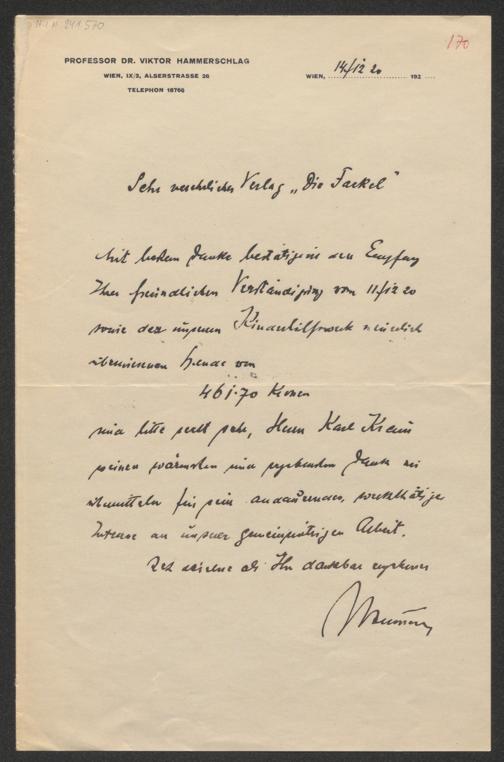 H.I.N. 241.570
170
PROFESSOR DR. VIKTOR HAMMERSCHLAG
WIEN, IX/3, ALSERSTRASSE 26
TELEPHON 18766
WIEN, 14/12 20 192
Sehr verehrlicher Verlag „Die Fackel"
Mit bestem Danke bestätige ich den Empfang
Ihrer freundlichen Verständigung vom 11/12 20
sowie der unserem Kinderhilfswerk neuerlich
überwiesenen Spende von
461·70 Kronen
und bitte sehr, Herrn Karl Kraus
seinen wärmsten und ergebensten Dank zu
übermitteln für sein andauerndes, werktätiges
Interesse an unserer gemeinnützigen Arbeit.
Ich zeichne als Ihr dankbar ergebener